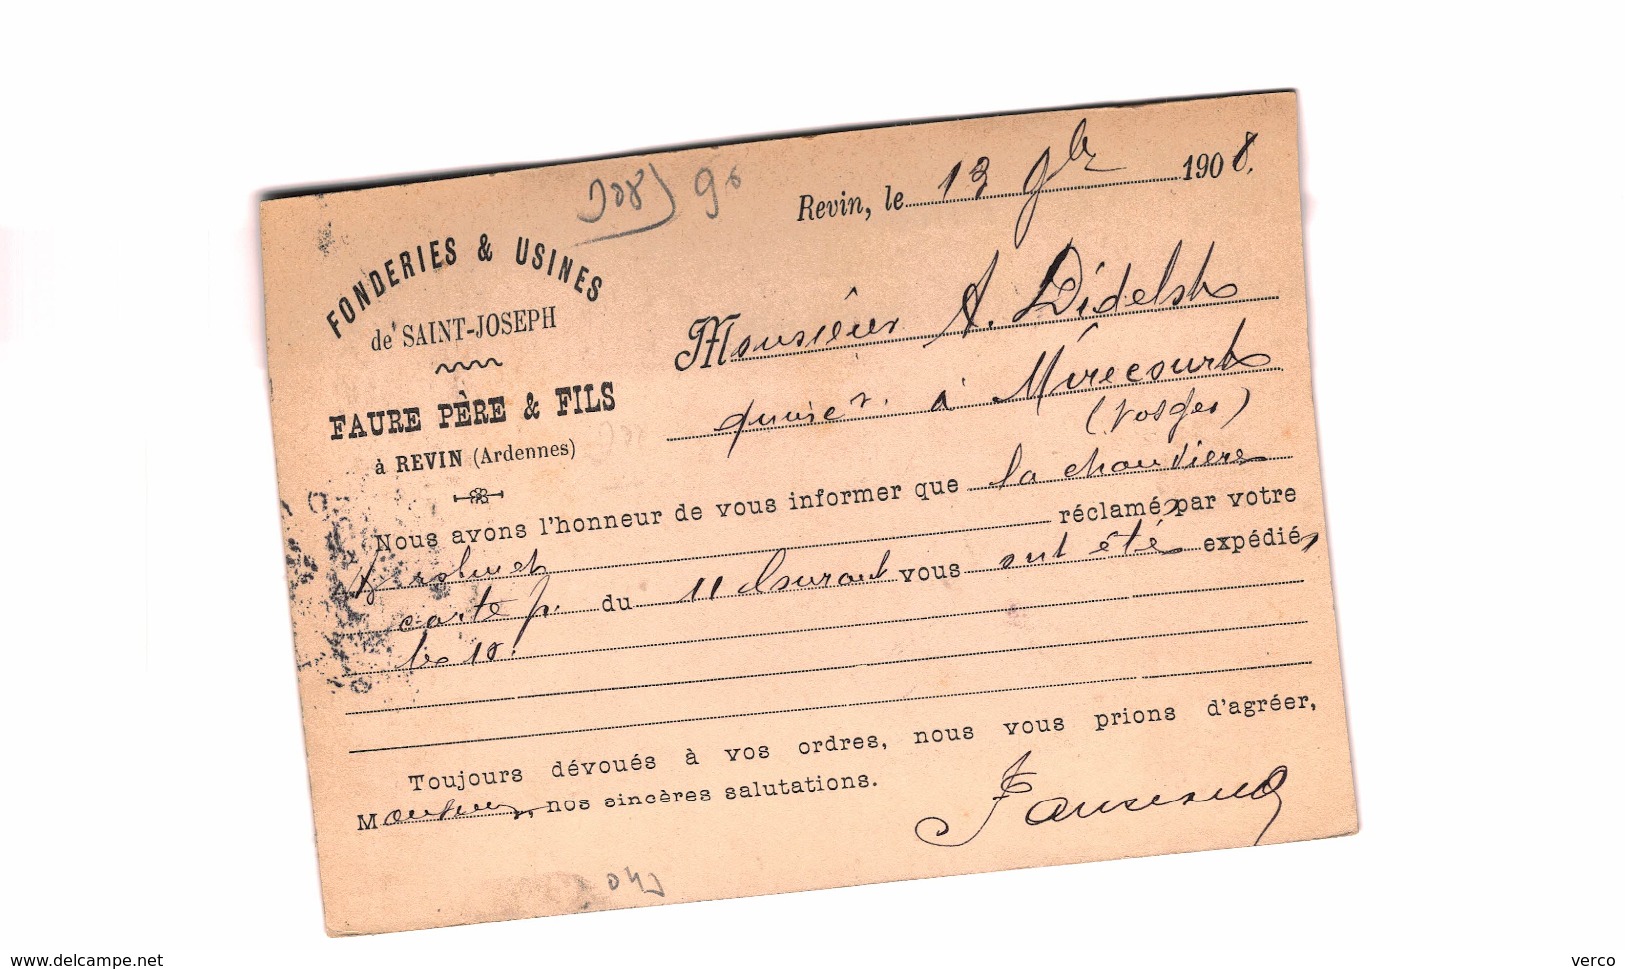 Revin, le 13 9bre 1908.
FONDERIES & USINES
de SAINT-JOSEPH
FAURE PÈRE & FILS
à REVIN (Ardennes)
Monsieur A. Didelot
à Mirecourt
(Vosges)
Nous avons l'honneur de vous informer que la chaudière
réclamé par votre
carte p. du 11 Courant vous ont été expédié
le 18.
Toujours dévoués à vos ordres, nous vous prions d'agréer,
Monsieur, nos sincères salutations.
www.delcampe.net
verco